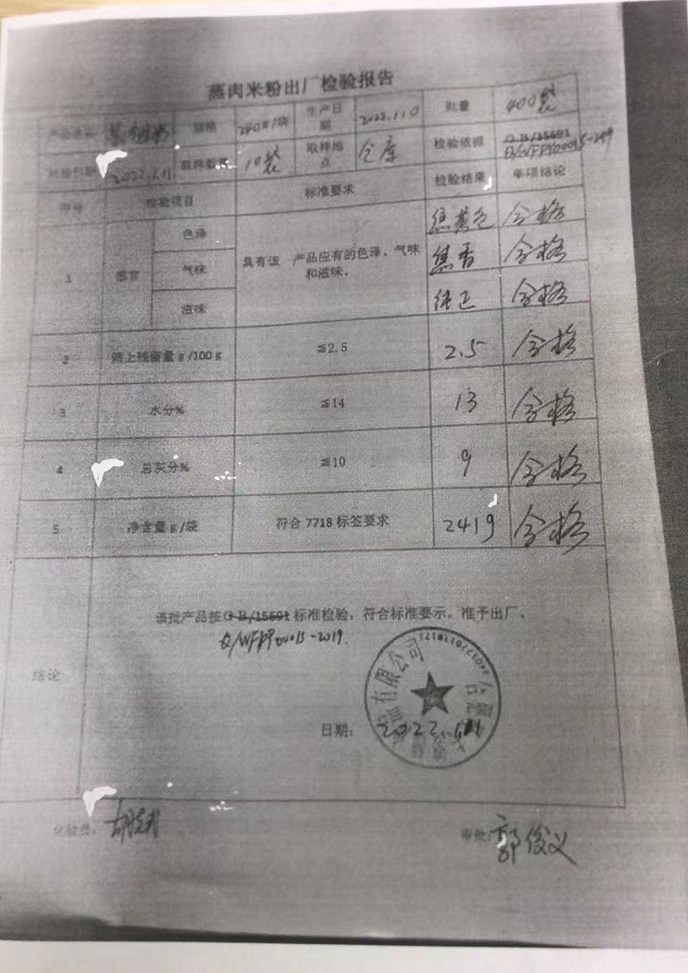 蒸肉米粉出厂检验报告
产品名称 规格 240g/袋 生产日期 批量 400袋
检验日期 取样数量 10袋 取样地点 仓库 检验依据 GB/15691
序号 检验项目 标准要求 检验结果 单项结论
1 感官 色泽 具有该 产品应有的色泽、气味和滋味。 焦黄色 合格
气味 焦香 合格
滋味 纯正 合格
2 筛上残留量g/100g ≦2.5 2.5 合格
3 水分% ≦14 13 合格
4 总灰分% ≦10 9 合格
5 净含量g/袋 符合7718标签要求 2419 合格
结论
该批产品按GB/15691标准检验，符合标准要示，准予出厂。
日期：2022.
有限公司
化验员：
审批：郭俊义